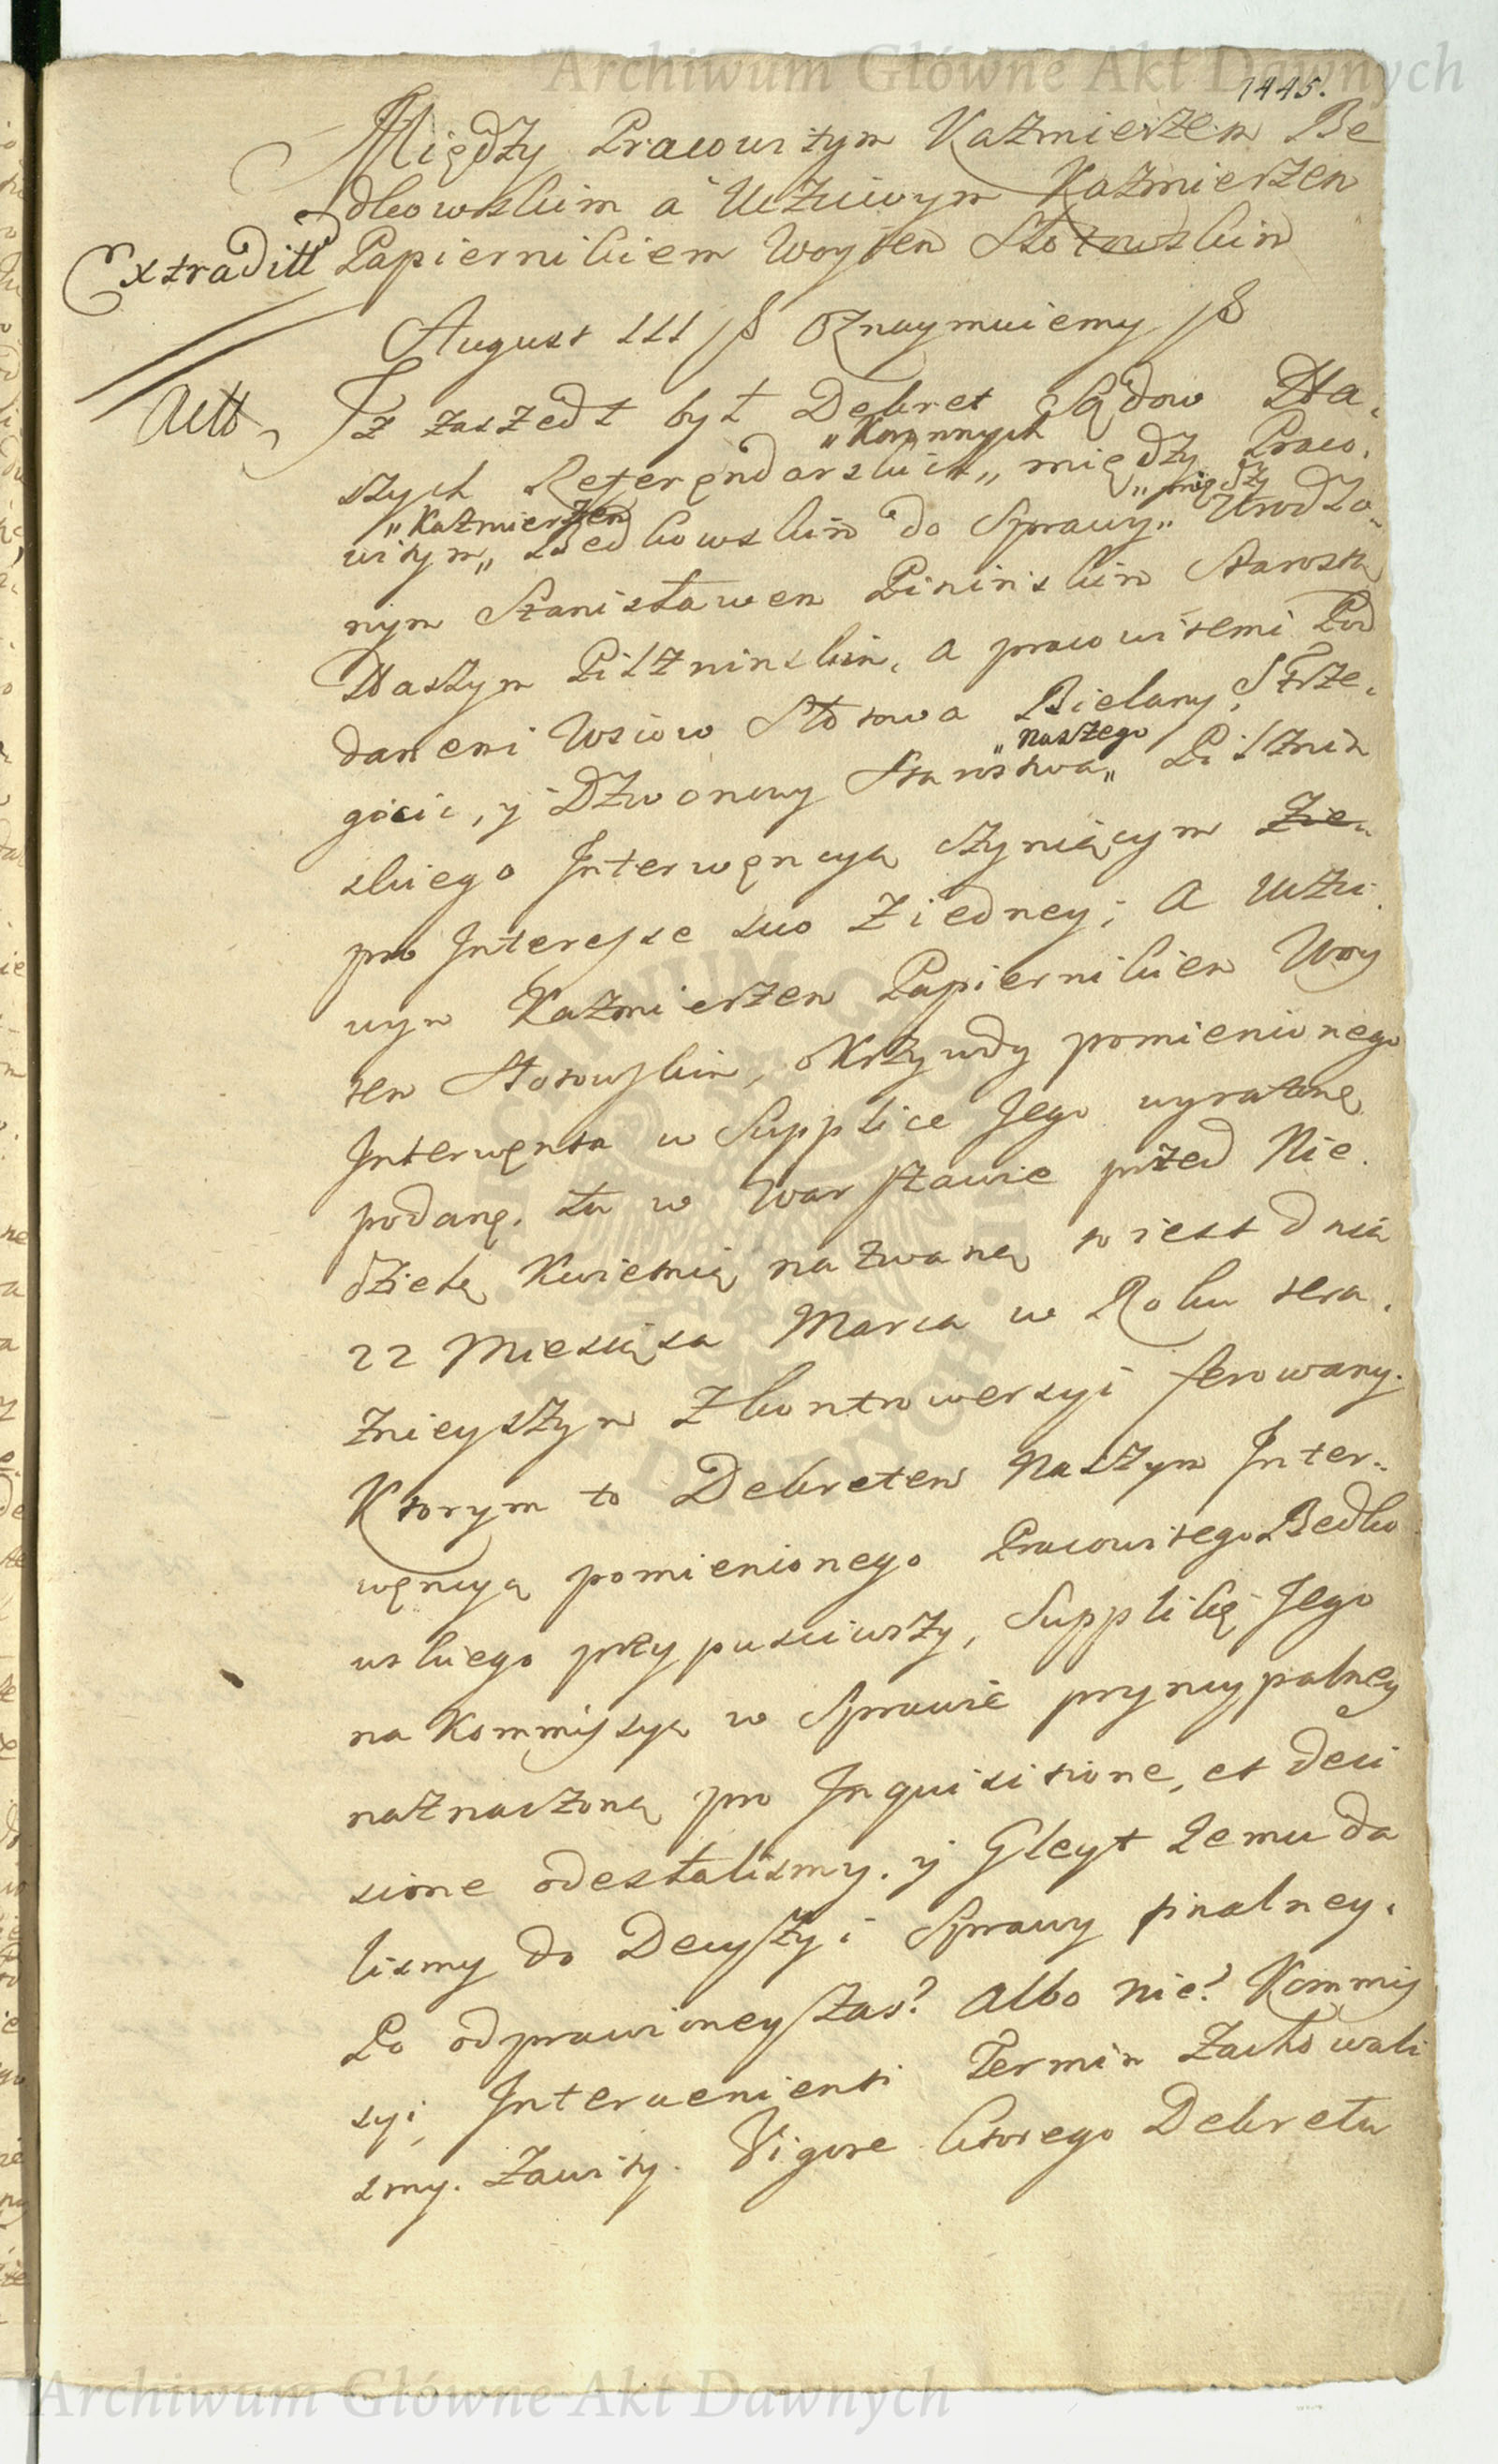 Archiwum Główne Akt Dawnych
1445.
Między Pracowitym Kazmierzem Be
dkowskim a Uczciwym Kazmierzem
Extradit Papiernikiem Woytem Słotowskim
August III /ß Oznaymuiemy /ß
Actt Iz zaszedł był Dekret Sądow Na,
szych Referęndarskich „ Koronnych „ między Praco,
witym „ Kazmierzem „ Bedkowskim do Sprawy „ między „ Urodzo„
nym Stanisławem Pininskim Starostą
Naszym Pilzninskim, a pracowitemi Pod
danemi Wsiow Słotowa Bielany, Strze,
gocic, y Dzwonowy Starostwa „ naszego „ Pilznin
skiego Interwęncyą czyniącym Zie„
pro Interesse suo z iedney; a Uczci
wym Kazmierzem Papiernikiem Woy
tem Słotowskim, o Krzywdy pomienionego
Interwęnta w Supplice Jego wyrażone
podanę. tu w Warszawie przed Nie.
dzielą Kwietnią nazwaną to iest dnia
22 Miesiąca Marca w Roku tera,
znieyszym z kontrowersyi ferowany.
Ktorym to Dekretem Naszym Inter„
węncyą pomienionego Pracowitego Bedko
wskiego przypusciwszy, Supplikę Jego
na Kommissyą w Sprawie pryncypalney
naznaczoną pro Inquisitione, et deci
sione odesłalismy. y Gleyt Jemu da
lismy do Decyzyi Sprawy finalney.
Po odprawioney zas? Albo nie? Kommis
syi, Intervenienti Termin Zachowali
smy. Zawity. Vigore ktorego Dekretu
Archiwum Główne Akt Dawnych